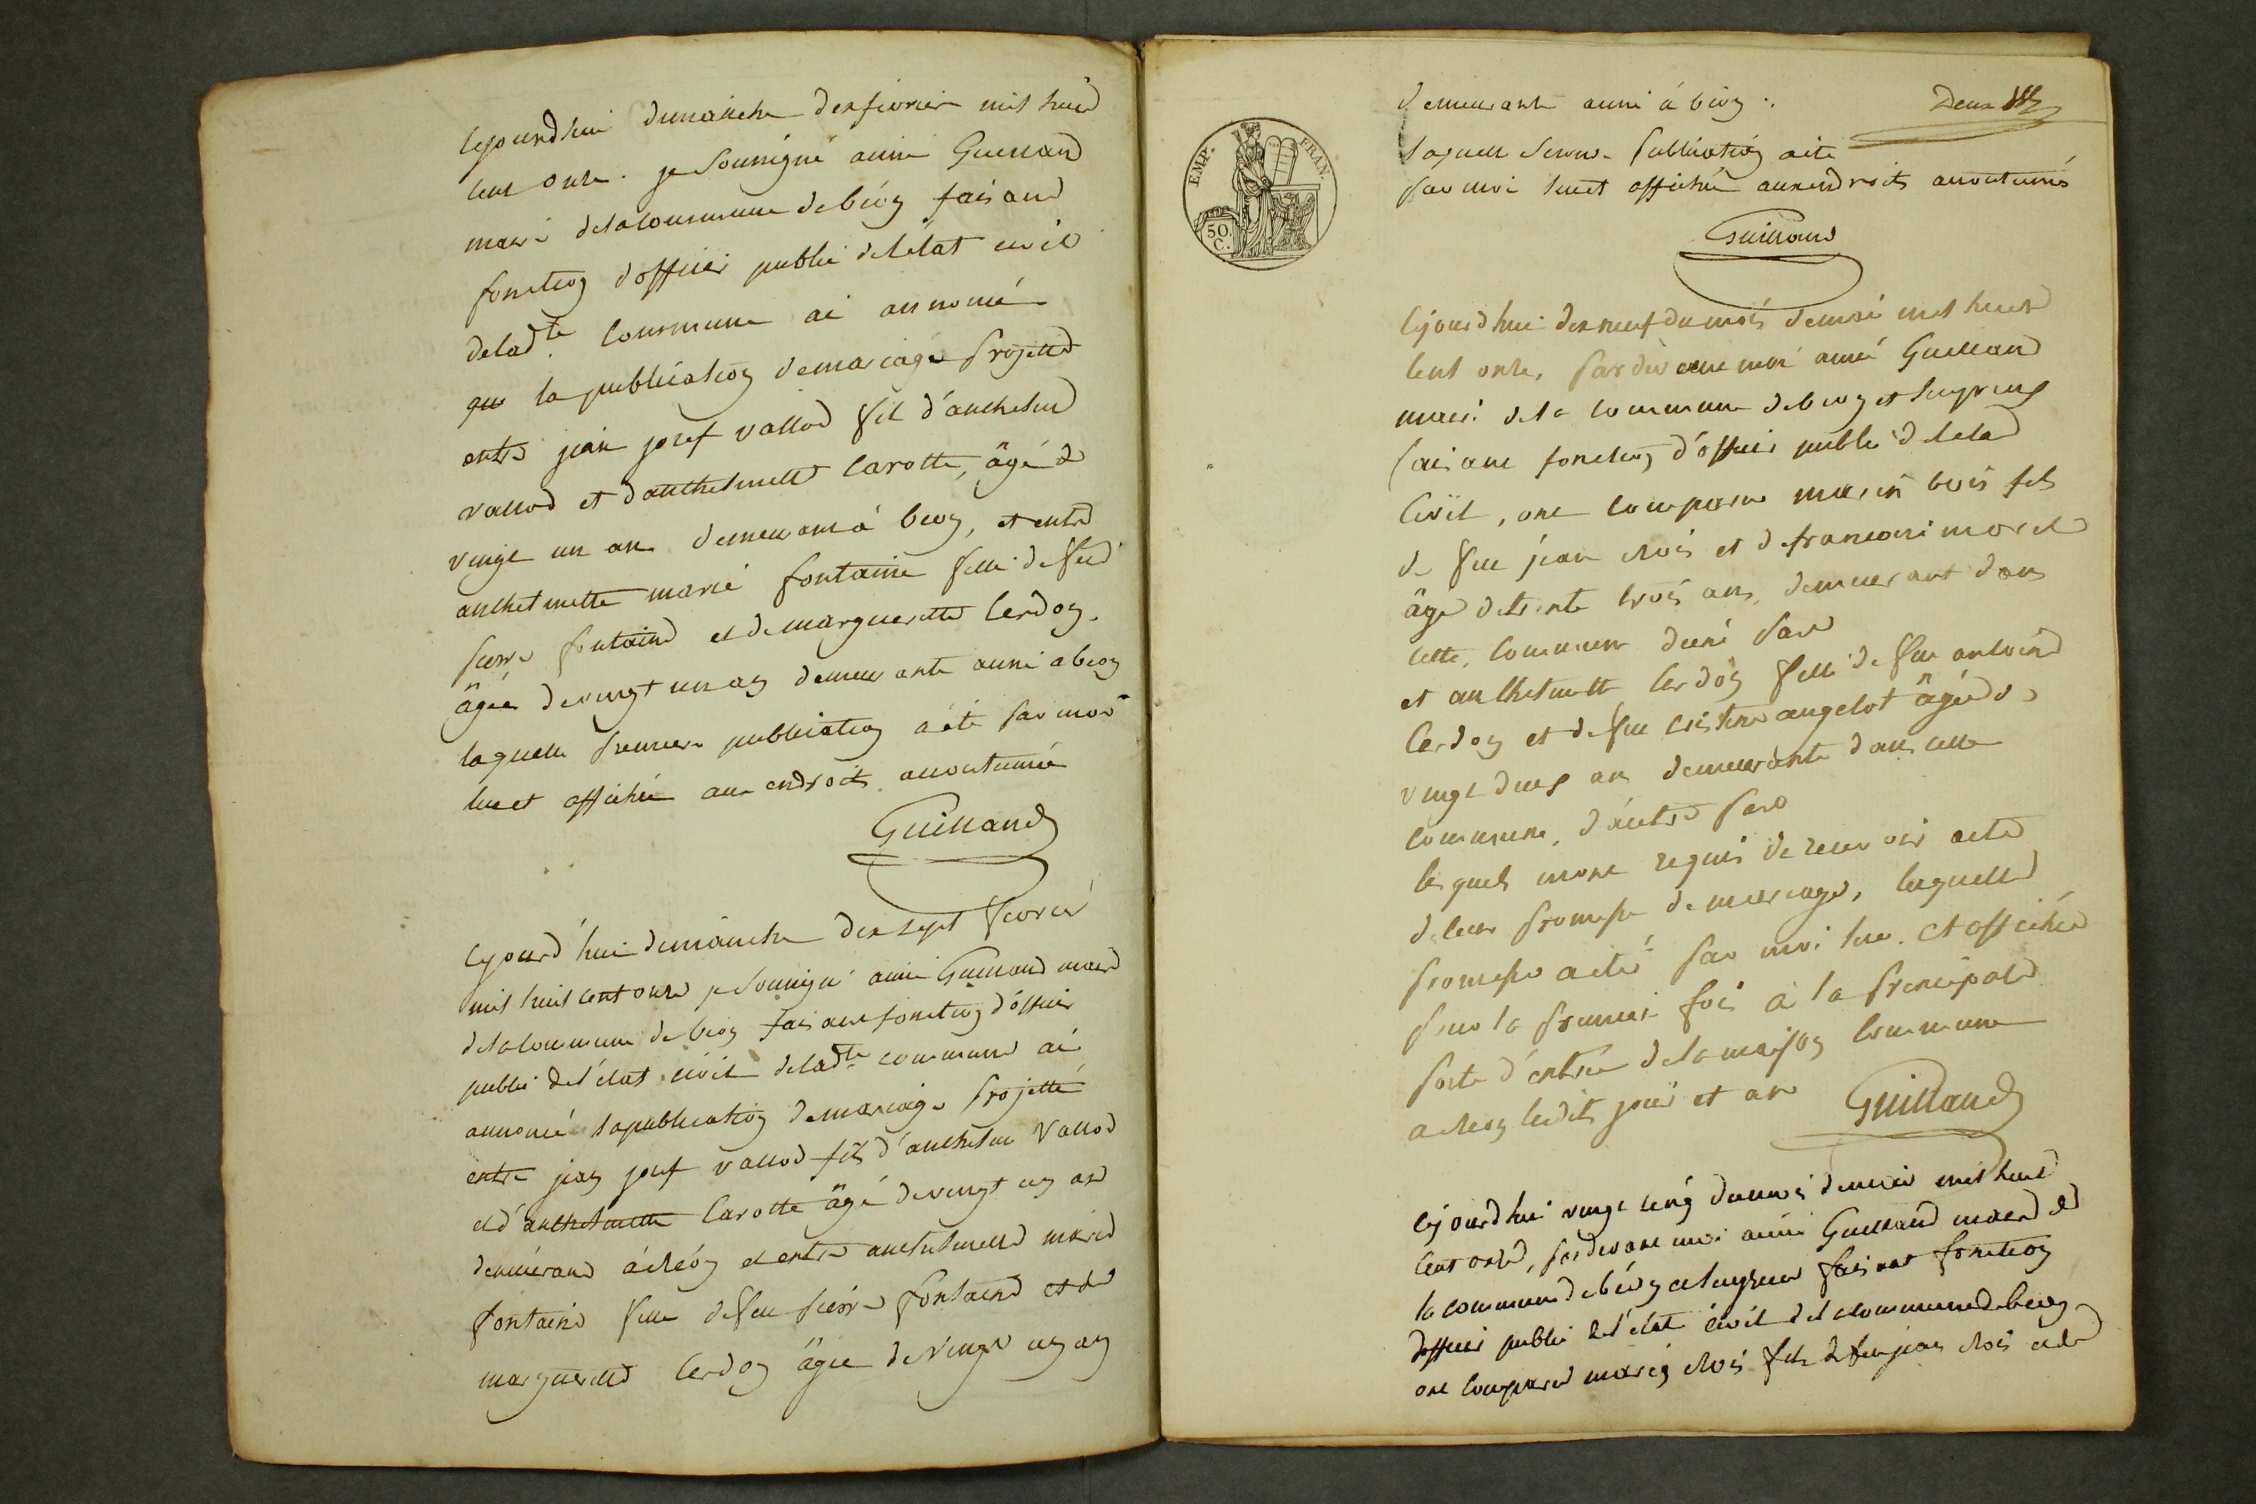 cejourdhui dimanche dix fevrier mil huit
cent onze. je soussigné aimé Guilland
maire de la commune de béon faisant
fonction d'officier public de l'état civil
de la d.te commune ai annoncé
que la publication de mariage projetté
entre jean josef vallod fils d'anthelme
vallod et d'anthelmette Carotte, âgé de
vingt un an demeurant à beon, et entre
anthelmette marie fontaine fille de feu
pierre fontaine et de marguerette Cerdon.
âgée de vingt un an demeurante aussi a beon
laquelle premiere publication a été par moi
lue et affichée aux endroits accoutumée
Guilland
cejourd'hui dimanche dix sept fevrier
mil huit cent onze je soussigné aimé Guilland maire
de la commune de beon faisant fonction d'officier
public de l'état civil de la d.te commune ai
annoncé la publication de mariage projetté
entre jean josef vallod fils d'anthelme Vallod
et d'anthelmette Carotte âgé de vingt un an
demeurand à béon et entre anthelmette marie
fontaine fille de feu pierre fontaine et de
marguerette Cerdon âgée de vingt un an
demeurante aussi à beon.
Deux
laquelle seconde publication a été
par moi lue et affichée aux endroits accoutumés
Guilland
EMP. FRAN.
50 C.
cejourdhui dix neuf du mois de mai mil huit
cent onze, par devant moi aimé Guilland
maire de la commune de beon et luyrieux
faisant fonction d'officier public de l'etat
Civil, ont comparu marin bois fils
de feu jean bois et de francoise morel
âgé de trente trois ans, demeurant dans
cette commune d'une part
et anthelmette Cerdon fille de feu antoine
Cerdon et de feu cristine angelot âgée de
vingt deux an demeurante dans cette
commune, d'autre part
lesquels m'ont requis de recevoir acte
de leur promesse de mariage, laquelle
promesse a eté par moi lue et affichée
pour la premier fois à la principale
porte d'entrée de la maison commune
a beon ledit jour et an
Guilland
cejourdhui vingt cinq du mois de mai mil huit
cent onze, par devant moi aimé Guilland maire de
la commune de béon et luyrieux faisant fonction
d'officier public de l'état civil de la commune de beon
ont comparu marin bois fils de feu jean bois et de